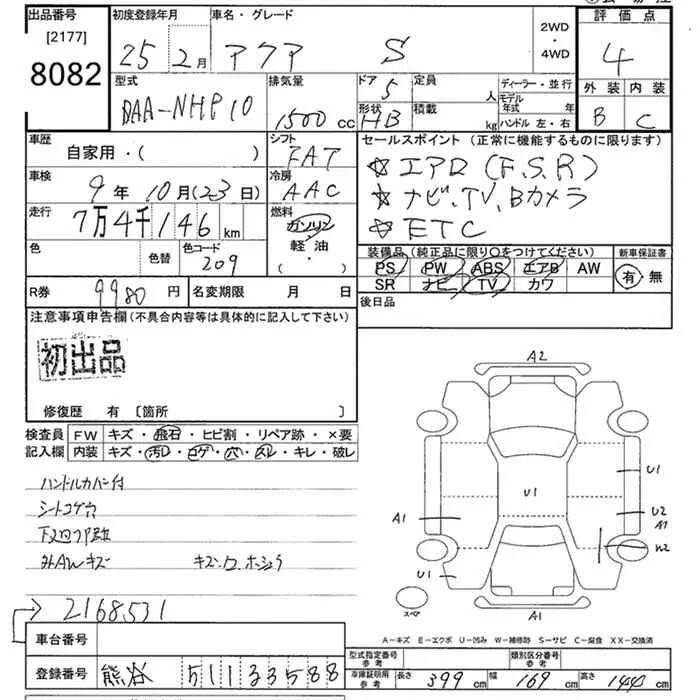 出品番号
[2177]
8082
初度登録年月
25 2月
車名・グレード
アクア S
2WD
・
4WD
評価点
4
型式
DAA-NHP10
排気量
1500 cc
ドア
5
形状
HB
定員
人
積載
kg
ディーラー・並行
モデル年式 年
ハンドル 左・右
外装 内装
B C
車歴
自家用・( )
シフト
FAT
セールスポイント (正常に機能するものに限ります)
☆エアロ(F.S.R)
☆ナビ、TV、Bカメラ
☆ETC
車検
9年 10月(23日)
冷房
AAC
走行
7万4千146 km
燃料
ガソリン
軽・油
・( )
色
色替
色コード
209
装備品 (純正品に限り○をつけてください)
PS PW ABS エアB AW
SR ナビ TV カワ
新車保証書
有・無
R券 9980円
名変期限 月 日
後日品
注意事項申告欄(不具合内容等は具体的に記入して下さい)
初出品
修復歴 有 [箇所 ]
検査員記入欄
FW キズ・飛石・ヒビ割・リペア跡・×要
内装 キズ・汚レ・コゲ・穴・スレ・キレ・破レ
ハンドルカバー付
シートコゲ穴
外AWキズ
2168531
車台番号
登録番号 熊谷 511 33588
A2
U1
U1
U2
A1
A1
W2
U1
スペア
A1
A-キズ E-エクボ U-凹み W-補修跡 S-サビ C-腐食 XX-交換済
型式指定番号 参考
類別区分番号 参考
車庫証明用 参考
長さ 399 cm
幅 169 cm
高さ 144 cm